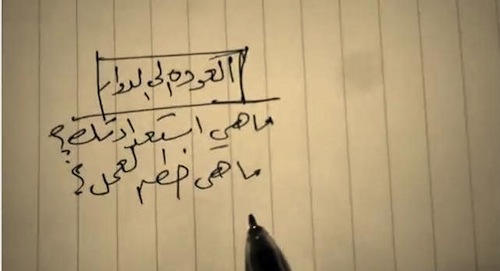 العوده إلي الدوام
ما هي استعداداتك؟
ما هي خطه العمل؟